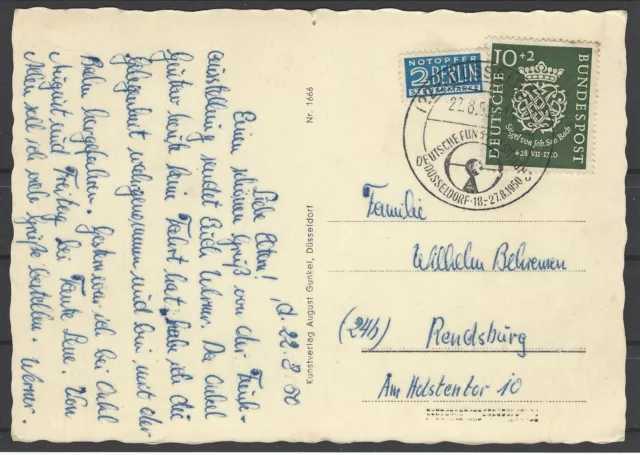 d. 22.8.50
Liebe Eltern!
Einen schönen Gruß von der Funk-
ausstellung sendet Euch Werner. Da Onkel
Günter heute seine Fahrt hat, habe ich die
Gelegenheit wahrgenommen und bin mit der
Bahn hergefahren. Gestern war ich bei Onkel
August und Freitag bei Tante Lene. Von
Allen soll ich viele Grüße bestellen. Werner.
Nr. 1666
Kunstverlag August Gunkel, Düsseldorf
NOTOPFER
2 BERLIN
STEUERMARKE
10+2
DEUTSCHE
BUNDESPOST
Siegel von Joh. Seb. Bach
+28 VII·1750
22.8.50
DEUTSCHE FUNK
DÜSSELDORF·18.-27.8.1950
Familie
Wilhelm Behrensen
(24b) Rendsburg
Am Holstentor 10